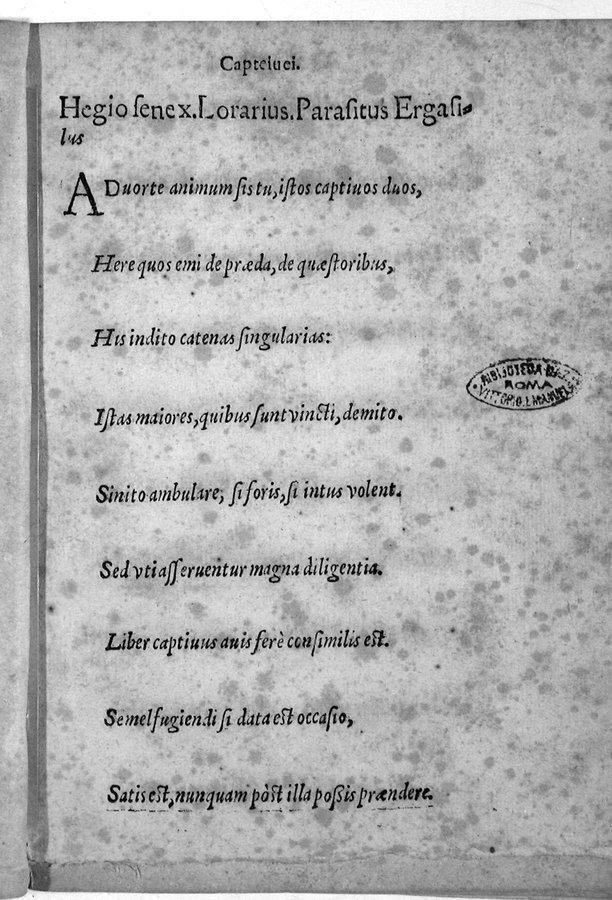 Capteiuei.
Hegio ſenex. Lorarius. Paraſitus Ergaſi-
lus
ADuorte animum ſis tu, iſtos captiuos duos,
Here quos emi de præda, de quæſtoribus,
His indito catenas ſingularias:
Iſtas maiores, quibus ſunt vincti, demito.
Sinito ambulare, ſi foris, ſi intus volent.
Sed vti aſſeruentur magna diligentia.
Liber captiuus auis ferè conſimilis eſt.
Semel fugiendi ſi data eſt occaſio,
Satis eſt, nunquam pòſt illa poßis prændere.
BIBLIOTECA NAZ
ROMA
VITTORIO EMANUELE